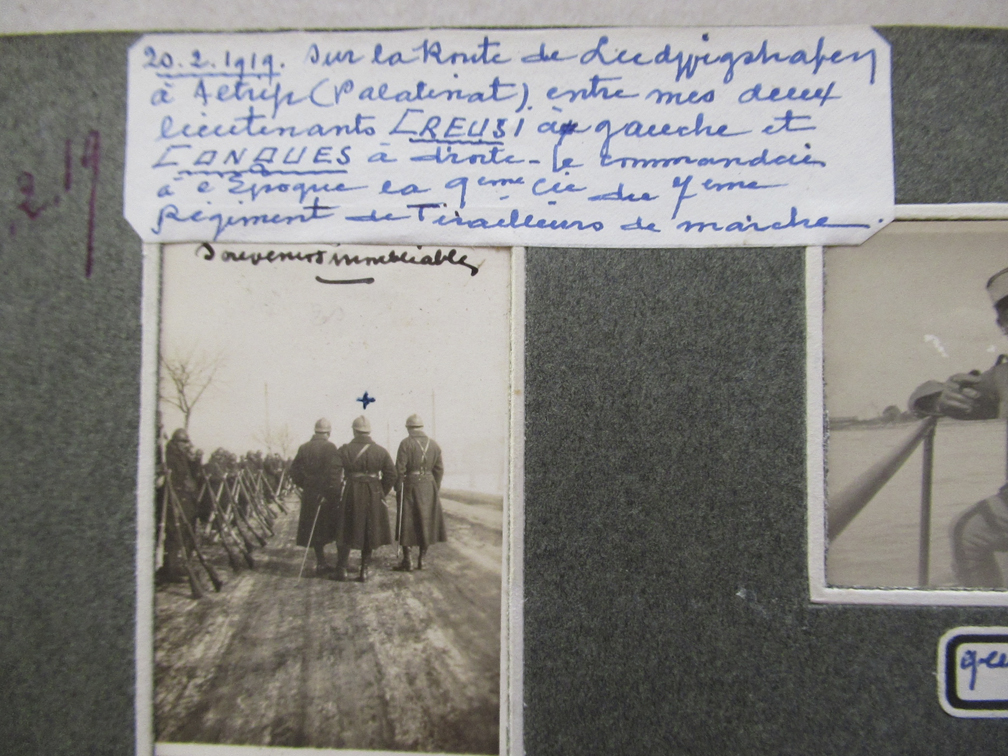 20.2.1919. Sur la Route de Luedwigshafen
à Altrip (Palatinat), entre mes deux
lieutenants CREUSI à gauche et
CONQUES à droite - Je commandais
à l'Epoque la 9eme Cie du 7eme
Régiment de Tirailleurs de marche.
Souvenirs inoubliables
.2.19